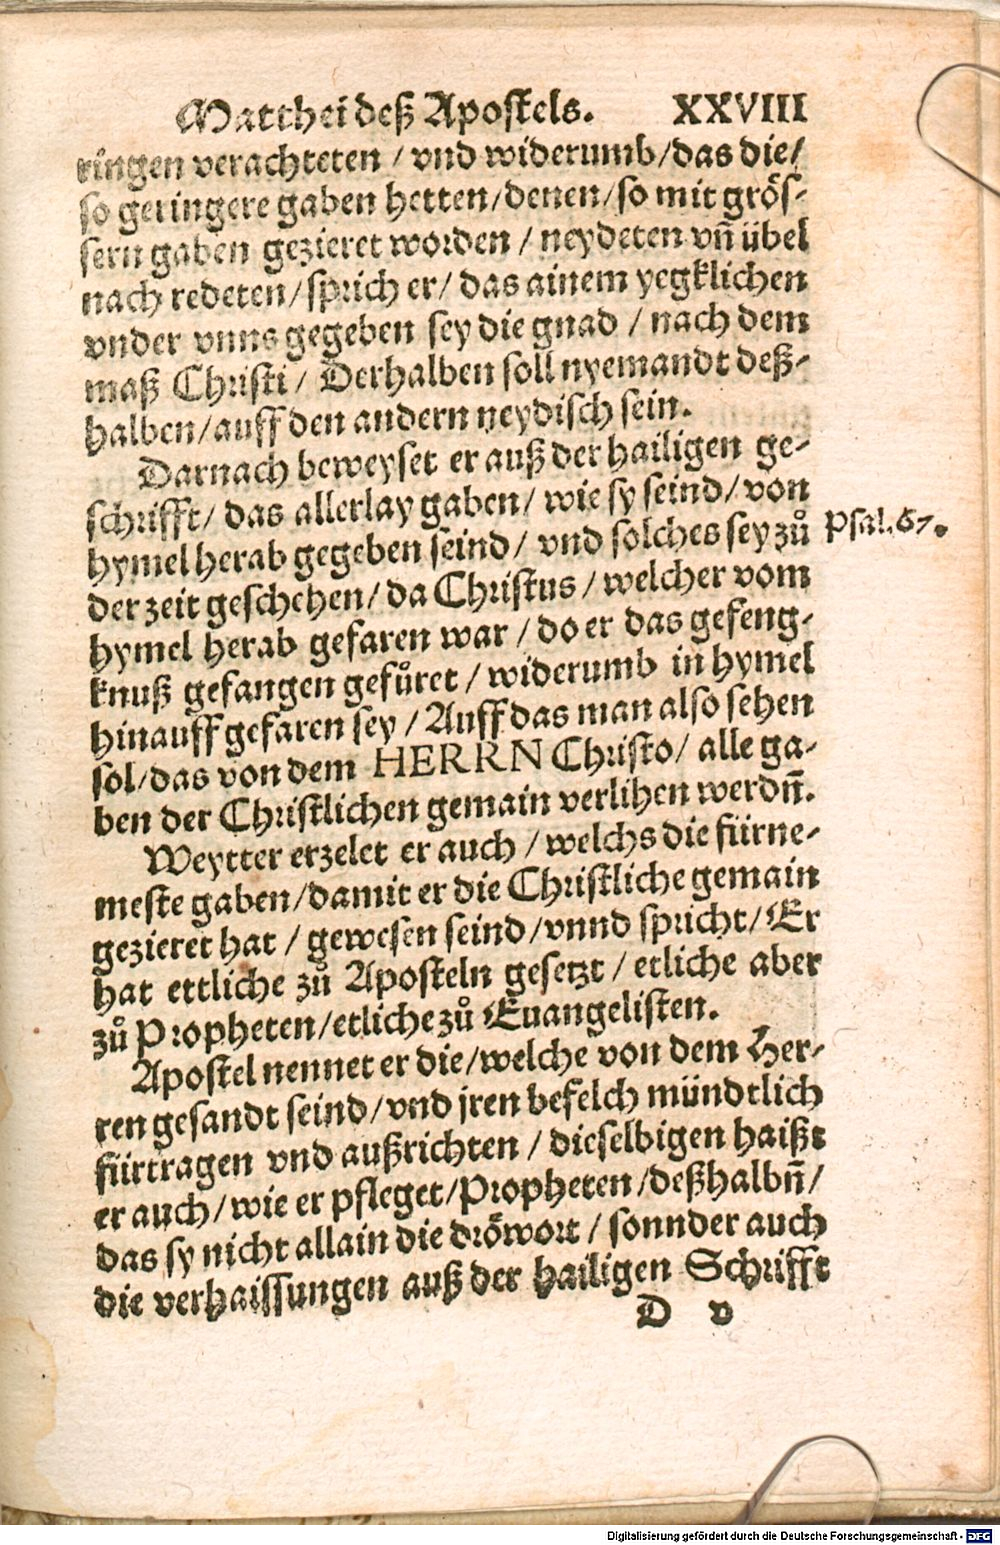 Matthei deß Apostels. XXVIII
ringen verachteten / vnd widerumb/das die/
so geringere gaben hetten/denen/so mit grös-
sern gaben gezieret worden / neydeten vñ übel
nach redeten/sprich er/ das ainem yegklichen
vnder vnns gegeben sey die gnad / nach dem
maß Christi / Derhalben soll nyemandt deß-
halben/auff den andern neydisch sein.
Darnach beweyset er auß der hailigen ge-
schrifft/ das allerlay gaben/ wie sy seind/ von
hymel herab gegeben seind/ vnd solches sey zů
Psal. 67.
der zeit geschehen/ da Christus / welcher vom
hymel herab gefaren war / do er das gefeng-
knuß gefangen gefůret / widerumb in hymel
hinauff gefaren sey / Auff das man also sehen
sol/das von dem HERRN Christo/ alle ga-
ben der Christlichen gemain verlihen werdñ.
Weytter erzelet er auch / welchs die fürne-
meste gaben/damit er die Christliche gemain
gezieret hat / gewesen seind/vnnd spricht/ Er
hat ettliche zů Aposteln gesetzt / etliche aber
zů Propheten/etliche zů Euangelisten.
Apostel nennet er die/welche von dem Her-
ren gesandt seind/vnd jren befelch mündtlich
fürtragen vnd außrichten / dieselbigen haißt
er auch/wie er pfleget/Propheten/deßhalbñ/
das sy nicht allain die dröwort / sonnder auch
die verhaissungen auß der hailigen Schrifft
D v
Digitalisierung gefördert durch die Deutsche Forschungsgemeinschaft - DFG